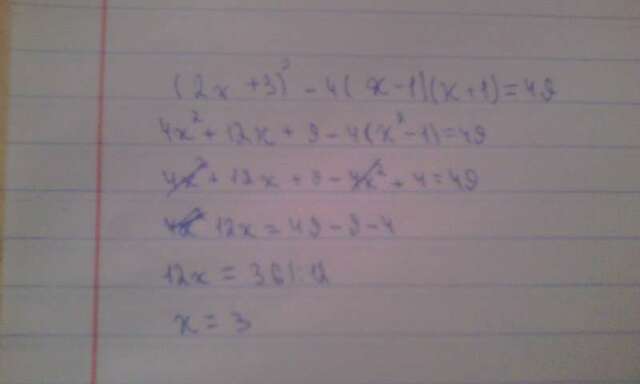 (2x+3)² - 4(x-1)(x+1)=49
4x²+12x+9-4(x²-1)=49
4x²+12x+9-4x²+4=49
12x=49-9-4
12x=36/:12
x=3